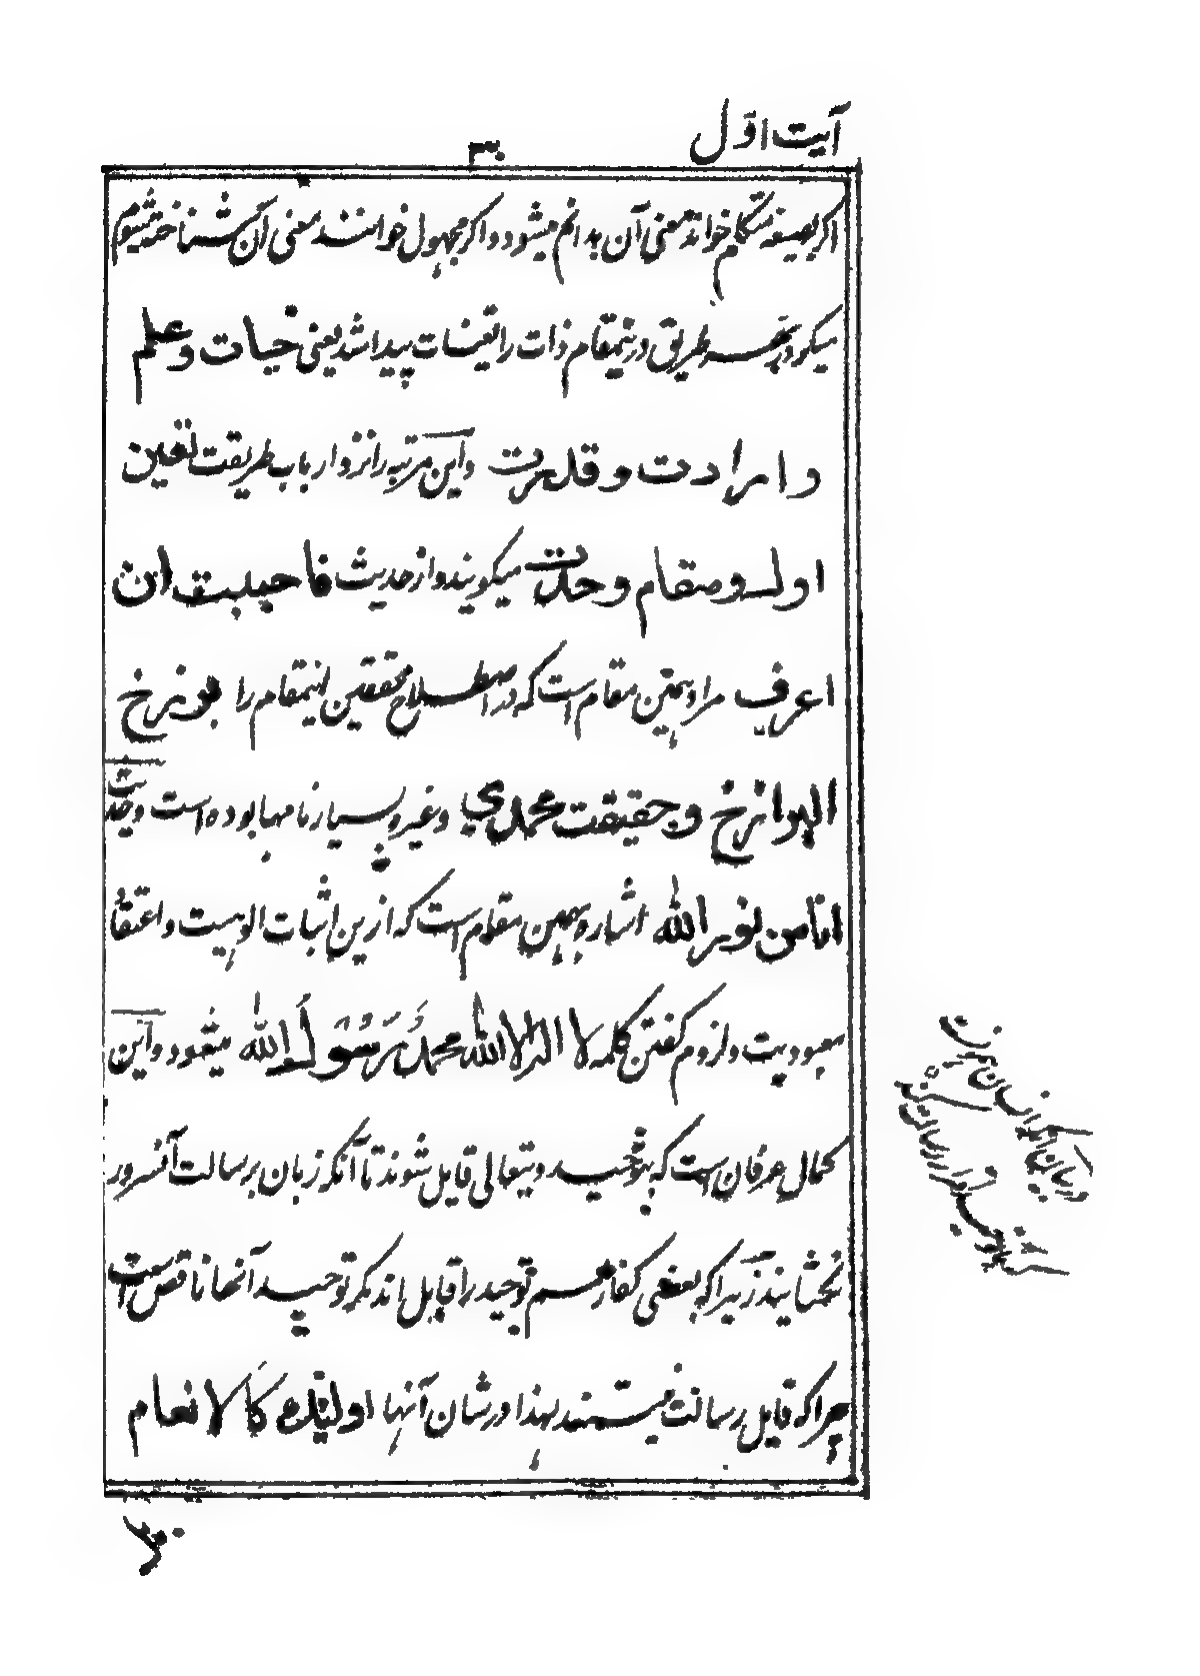 آیت اوّل
۳۰
اگر بصیغهٔ متکلم خوانند معنی آن بدانم میشود و اگر مجهول خوانند معنی آن شناخته شوم
میگردد بهر طریق درینمقام ذات را تعینات پیدا شد یعنی حیات و علم
و ارادت و قدرت و این مرتبه را نزد ارباب طریقت تعین
اول و مقام وحدت میگویند و از حدیث فاحببت ان
اعرف مراد همین مقام است که در اصطلاح محققین اینمقام را برزخ
البرازخ و حقیقت محمدی و غیره بسیار نامها بوده است و حدیث
انا من نور الله اشاره بهمین مقام است که ازین اثبات الوهیت و اعتقاد
معبودیت و لزوم گفتن کلمه لا اله الا الله محمد رسول الله میشود و این
کمال عرفان است که بتوحید او تعالی قایل شوند تا آنکه زبان برسالت آنسرور
نخشایند زیرا که بعضی کفار هم توحید را قایل اند مگر توحید آنها ناقص است
چرا که قایل رسالت نیستند لهذا در شان آنها اولئک کالانعام
در بیان آنکه انسان بمعرفت